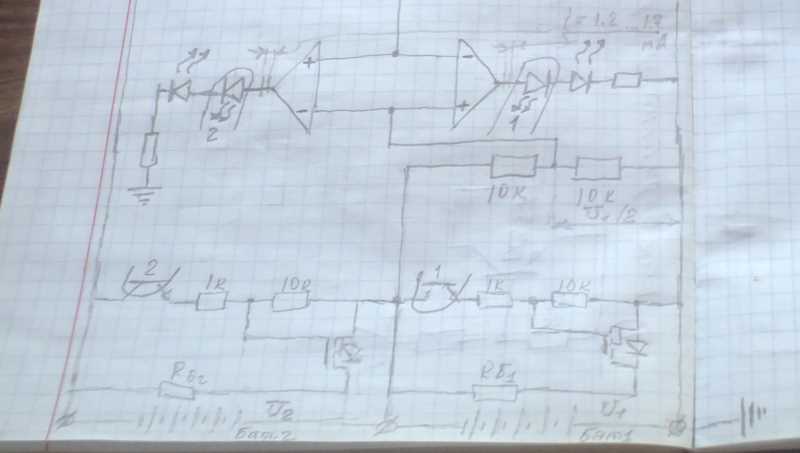 I = 1.2 ... 12
mA
+
-
-
+
2
1
10к
10к
U₁/2
2
1к
10к
1
1к
10к
Rб2
Rб1
U2
U1
Бат.2
Бат1